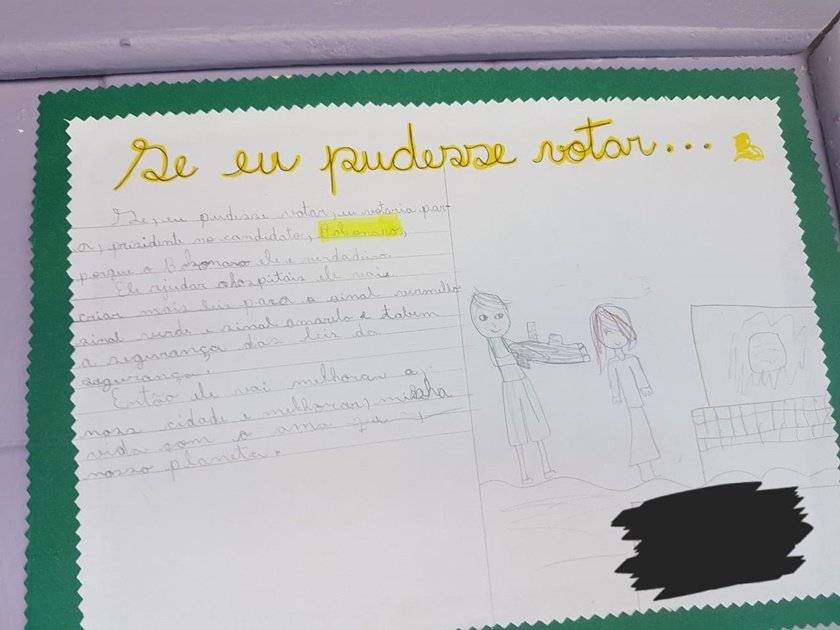 Se eu pudesse votar...
Se, eu pudesse votar, eu votaria par-
a, presidente no candidato, Bolsonaro,
porque o Bolzonaro ele e verdadeiro.
Ele ajudar ohospitais ele vai
criar mais leis para o sinal vermelho
sinal verde e sinal amarelo e tabem
a segurança das leis da
segurança.
Então ele vai melhorar a
noss cidade e melhorar, minha
vida com o ama
nosso planeta.